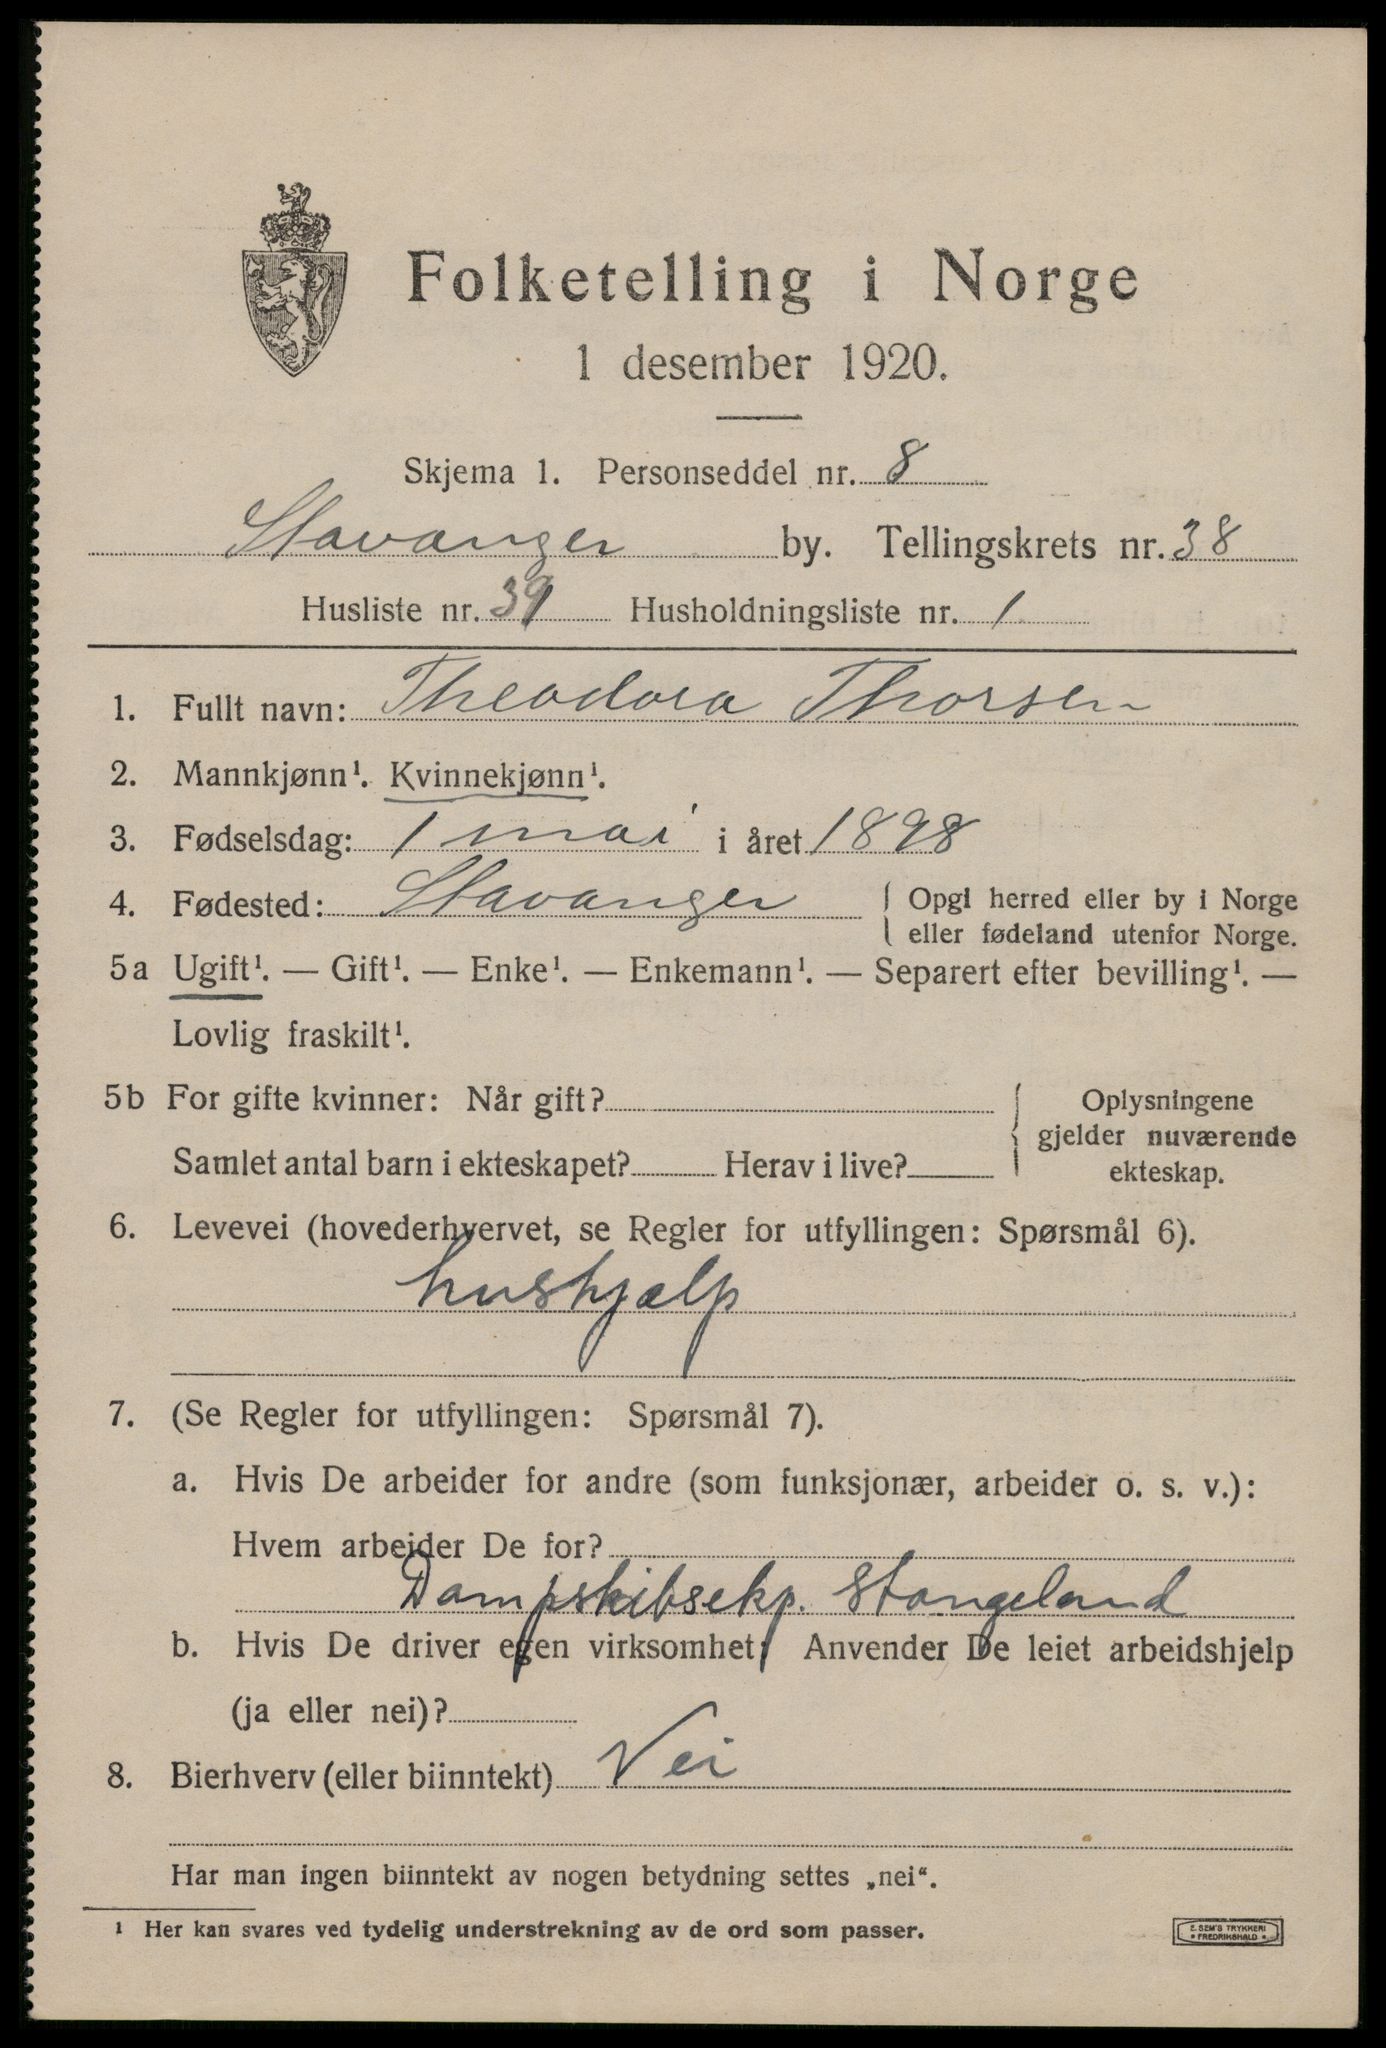 Folketelling i Norge
1 desember 1920.
Skjema 1. Personseddel nr. 8
Stavanger by. Tellingskrets nr. 38
Husliste nr. 39 Husholdningsliste nr. 1
1. Fullt navn: Theodora Thorsen
2. Mannkjønn¹. Kvinnekjønn¹.
3. Fødselsdag: 1 mai i året 1898
4. Fødested: Stavanger { Opgi herred eller by i Norge
eller fødeland utenfor Norge.
5a Ugift¹. — Gift¹. — Enke¹. — Enkemann¹. — Separert efter bevilling¹. —
Lovlig fraskilt¹.
5b For gifte kvinner: Når gift? { Oplysningene
gjelder nuværende
Samlet antal barn i ekteskapet? Herav i live? ekteskap.
6. Levevei (hovederhvervet, se Regler for utfyllingen: Spørsmål 6).
hushjælp
7. (Se Regler for utfyllingen: Spørsmål 7).
a. Hvis De arbeider for andre (som funksjonær, arbeider o. s. v.):
Hvem arbeider De for?
Dampskibsekp. Stangeland
b. Hvis De driver egen virksomhet: Anvender De leiet arbeidshjelp
(ja eller nei)?
8. Bierhverv (eller biinntekt) Nei
Har man ingen biinntekt av nogen betydning settes „nei“.
¹ Her kan svares ved tydelig understrekning av de ord som passer.
E. SEM'S TRYKKERI
• FREDRIKSHALD •